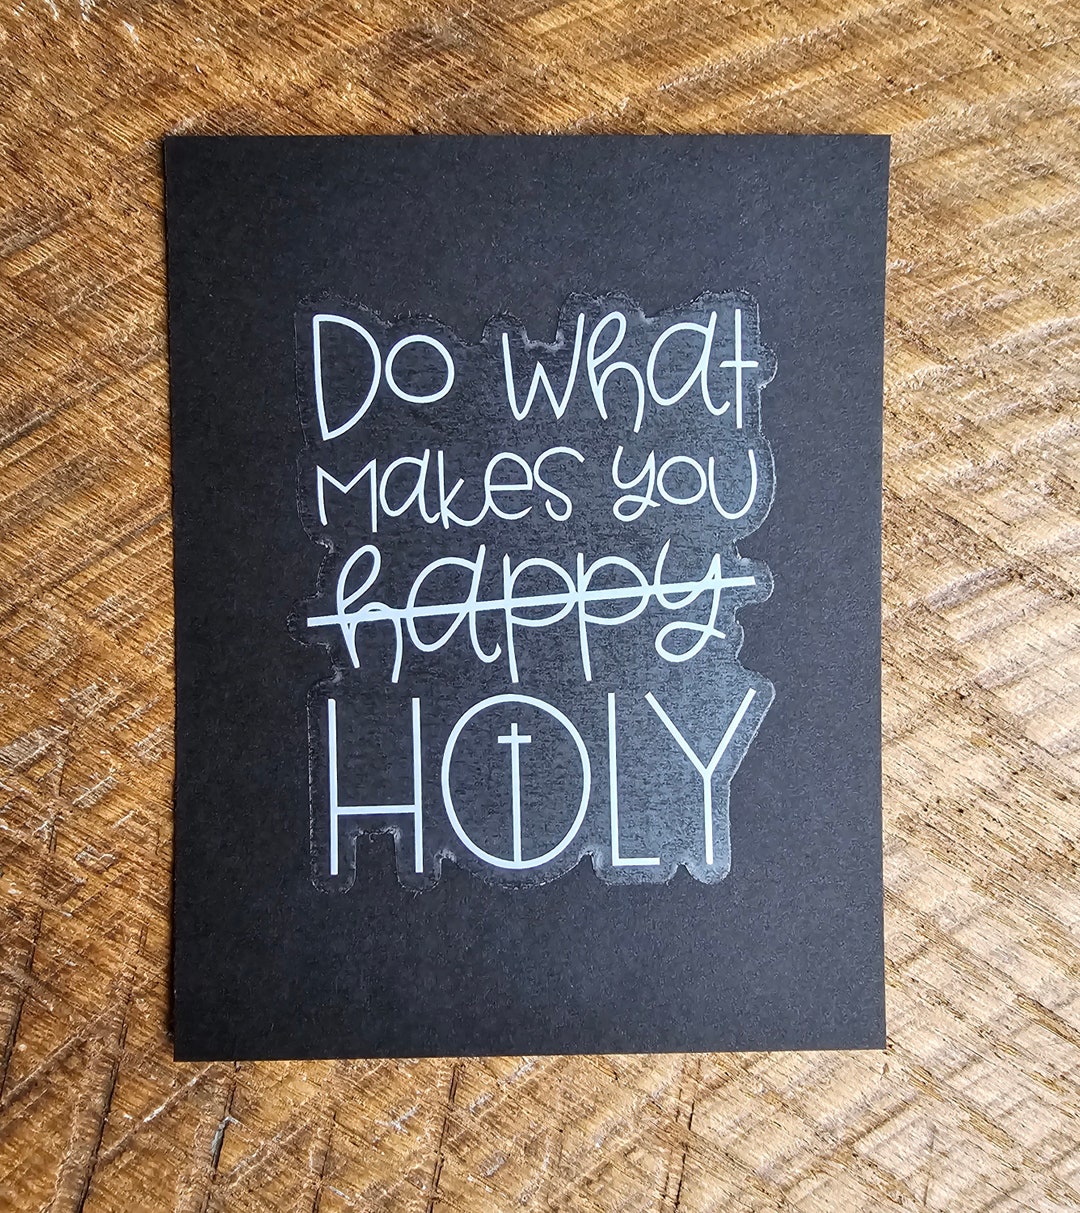 Do what
makes you
happy
HOLY